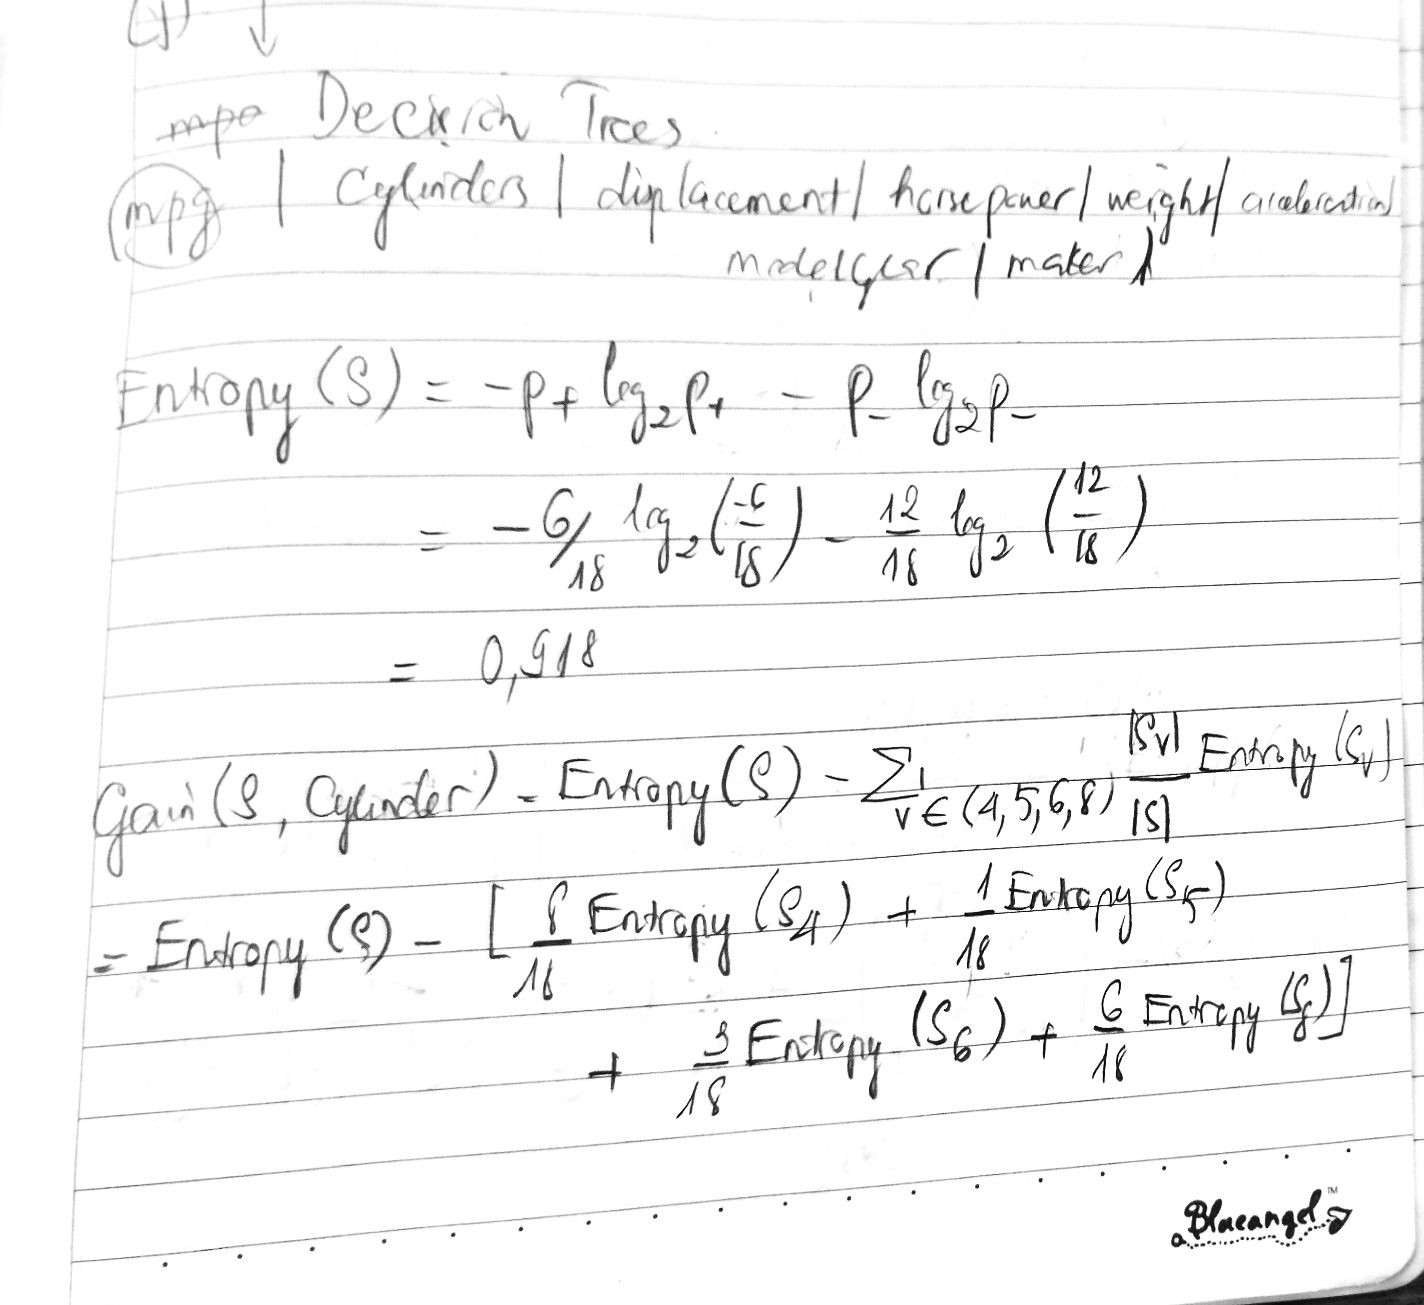 (y) ↓
mpo Decision Trees
mpg | Cylinders | displacement | horsepower | weight | acceleration |
modelyear | maker |
Entropy (S) = -P+ log2 P+ - P- log2 P-
= -6/18 log2 (-6/18) - 12/18 log2 (12/18)
= 0,918
Gain (S, Cylinder) = Entropy (S) - Σ v ∈ (4,5,6,8) |Sv|/|S| Entropy (Sv)
= Entropy (S) - [ 8/18 Entropy (S4) + 1/18 Entropy (S5)
+ 3/18 Entropy (S6) + 6/18 Entropy (S8)]
Blueangel™